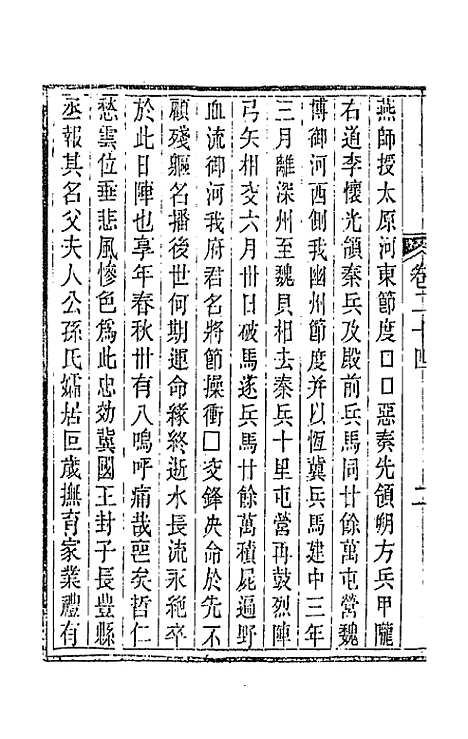 燕師授太原河東節度□□惡奏先領朔方兵甲隴
右道李懷光領秦兵及殿前兵馬同廿餘萬屯營魏
博御河西側我幽州節度并以恆冀兵馬建中三年
三月離深州至魏貝相去秦兵十里屯營再鼓烈陣
弓矢相交六月卅日破馬遂兵馬廿餘萬積屍遍野
血流御河我府君名將節操衝□交鋒決命於先不
顧殘軀名播後世何期運命緣終逝水長流永絕卒
於此日陣也享年春秋卅有八嗚呼痛哉𠀼矣哲仁
愁雲位垂悲風慘色為此忠効冀國王封子長豊縣
丞報其名父夫人公孫氏孀居叵歲撫育家業禮有
卷二十四
二